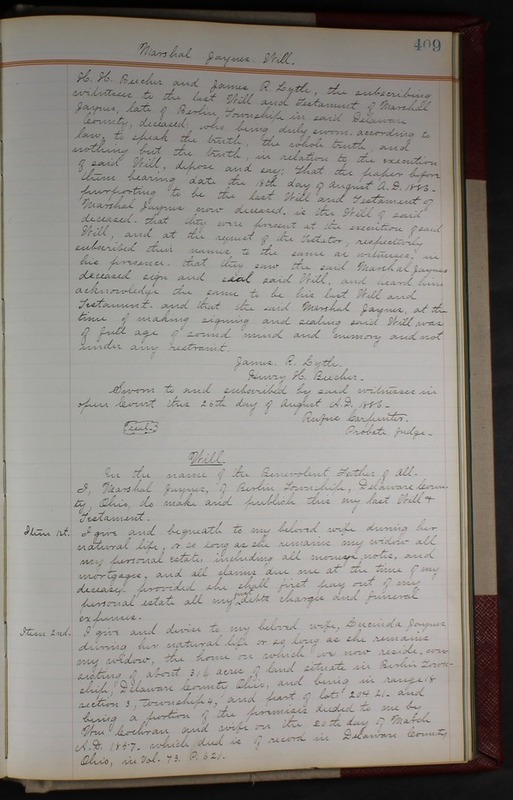 409
Marshal Jaynes Will.
H. H. Beecher and James R. Lytle, the subscribing
witnesses to the last Will and Testament of Marshall
Jaynes, late of Berlin Township in said Delaware
County, deceased, who being duly sworn according to
law, to speak the truth, the whole truth, and
nothing but the truth, in relation to the execution
of said Will, depose and say; That the paper before
them bearing date the 18th day of August A.D. 1883.
purporting to be the last Will and Testament of
Marshal Jaynes now deceased, is the Will of said
deceased. that they were present at the execution of said
Will, and at the request of the testator, respectively
subscribed their names to the same as witnesses, in
his presence. that they saw the said Marshal Jaynes
deceased sign and seal said Will, and heard him
acknowledge the same to be his last Will and
Testament. and that the said Marshal Jaynes, at the
time of making signing and sealing said Will was
of full age of sound mind and memory and not
under any restraint.
James R. Lytle.
Henry H. Beecher.
Sworn to and subscribed by said witnesses in
open Court this 26th day of August A.D. 1886.
Rufus Carpenter.
Seal.
Probate Judge.
Will.
In the name of the Benevolent Father of all.
I, Marshal Jaynes, of Berlin Township, Delaware Coun-
ty, Ohio, do make and publish this my last Will &
Testament.
Item 1st. I give and bequeath to my beloved wife during her
natural life, or so long as she remains my widow all
my personal estate, including all moneys, notes, and
mortgages, and all claims due me at the time of my
decease, provided she shall first pay out of my
personal estate all my just debts charges and funeral
expenses.
Item 2nd. I give and devise to my beloved wife, Lucinda Jaynes
during her natural life or so long as she remains
my widow, the home on which we now reside, con-
sisting of about 31 acres of land situate in Berlin Town-
ship, Delaware County Ohio, and being in range 18
section 3, township 4, and part of lots 204 21. and
being a portion of the premises deeded to me by
Wm Cochran and wife on the 20th day of March
A.D. 1857. which deed is of record in Delaware County
Ohio, in Vol. 73. P. 621.